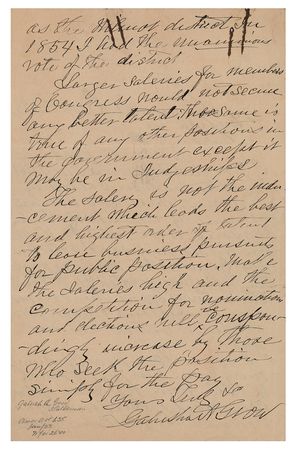 as the Wilmot district in
1854 I had the unanimous
vote of the district
Larger Salaries for members
of Congress would not secure
any better talent. The same is
true of any other positions in
the government except it
may be in Judgeships
The Salary is not the indu-
cement which leads the best
and highest order of talent
to leave business pursuits
for public position. Make
the Salaries high and the
competition for nomination
and elections will correspon-
dingly increase by those
who seek the position
simply for the pay
Yours truly
Galusha A Grow
Galusha A. Grow
Statesman